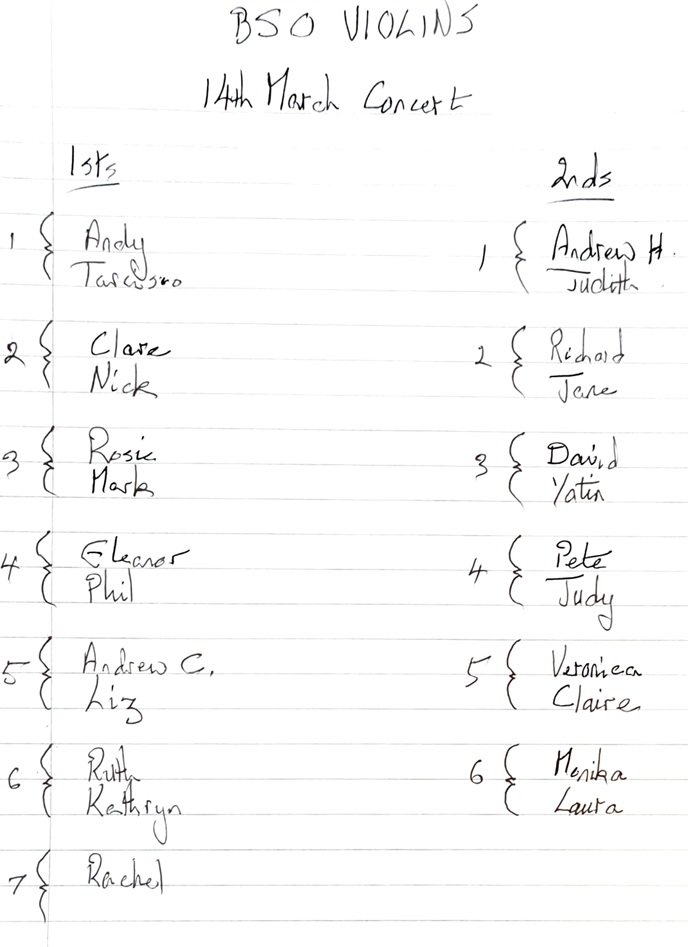 BSO VIOLINS
14th March Concert
1sts
1 { Andy
Tarcisio
2 { Clare
Nick
3 { Rosie
Mark
4 { Eleanor
Phil
5 { Andrew C.
Liz
6 { Ruth
Kathryn
7 { Rachel
2nds
1 { Andrew H.
Judith
2 { Richard
Jane
3 { David
Yatin
4 { Pete
Judy
5 { Veronica
Claire
6 { Monika
Laura